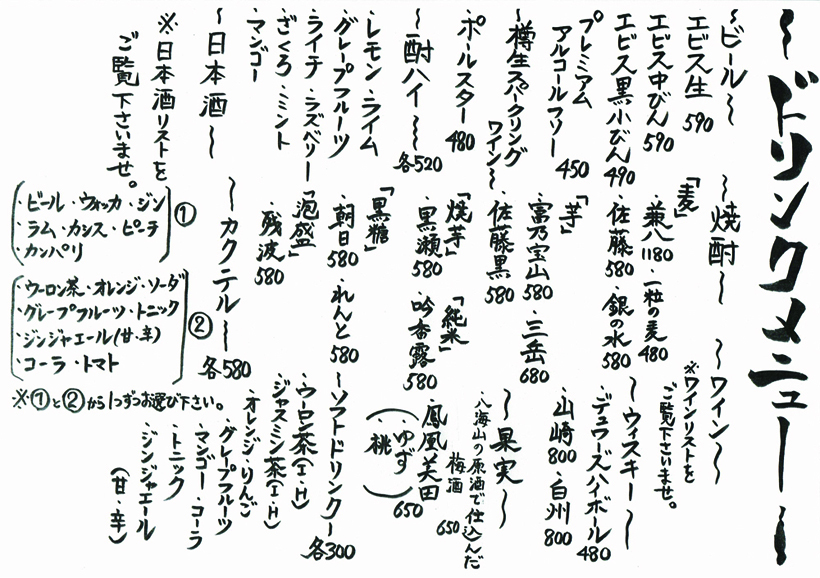 ～ドリンクメニュー～
～ビール～
エビス生 590
エビス中びん 590
エビス黒小びん 490
プレミアム
アルコールフリー 450
～樽生スパークリング
ワイン～
ポールスター 480
～酎ハイ～ 各520
レモン・ライム
グレープフルーツ
ライチ・ラズベリー
ざくろ・ミント
マンゴー
～日本酒～
※日本酒リストを
ご覧下さいませ。
～焼酎～
「麦」
・兼八 1180 ・一粒の麦 480
・佐藤 580 ・銀の水 580
「芋」
・富乃宝山 580 ・三岳 680
・佐藤黒 580
「焼芋」 「純米」
・黒瀬 580 ・吟香露 580
「黒糖」
・朝日 580 ・れんと 580
「泡盛」
・残波 580
～カクテル～ 各580
・ビール・ウォッカ・ジン
・ラム・カシス・ピーチ
・カンパリ
①
・ウーロン茶・オレンジ・ソーダ
・グレープフルーツ・トニック
・ジンジャエール(甘・辛)
・コーラ・トマト
②
※①と②から1つずつお選び下さい。
～ワイン～
※ワインリストを
ご覧下さいませ。
～ウィスキー～
・デュワーズハイボール 480
・山崎 800 ・白州 800
～果実～
八海山の原酒で仕込んだ
梅酒 650
・鳳凰美田 650
(・ゆず
・桃)
～ソフトドリンク～ 各300
・ウーロン茶(I・H)
・ジャスミン茶(I・H)
・オレンジ・りんご
・グレープフルーツ
・マンゴー・コーラ
・トニック
・ジンジャエール
(甘・辛)